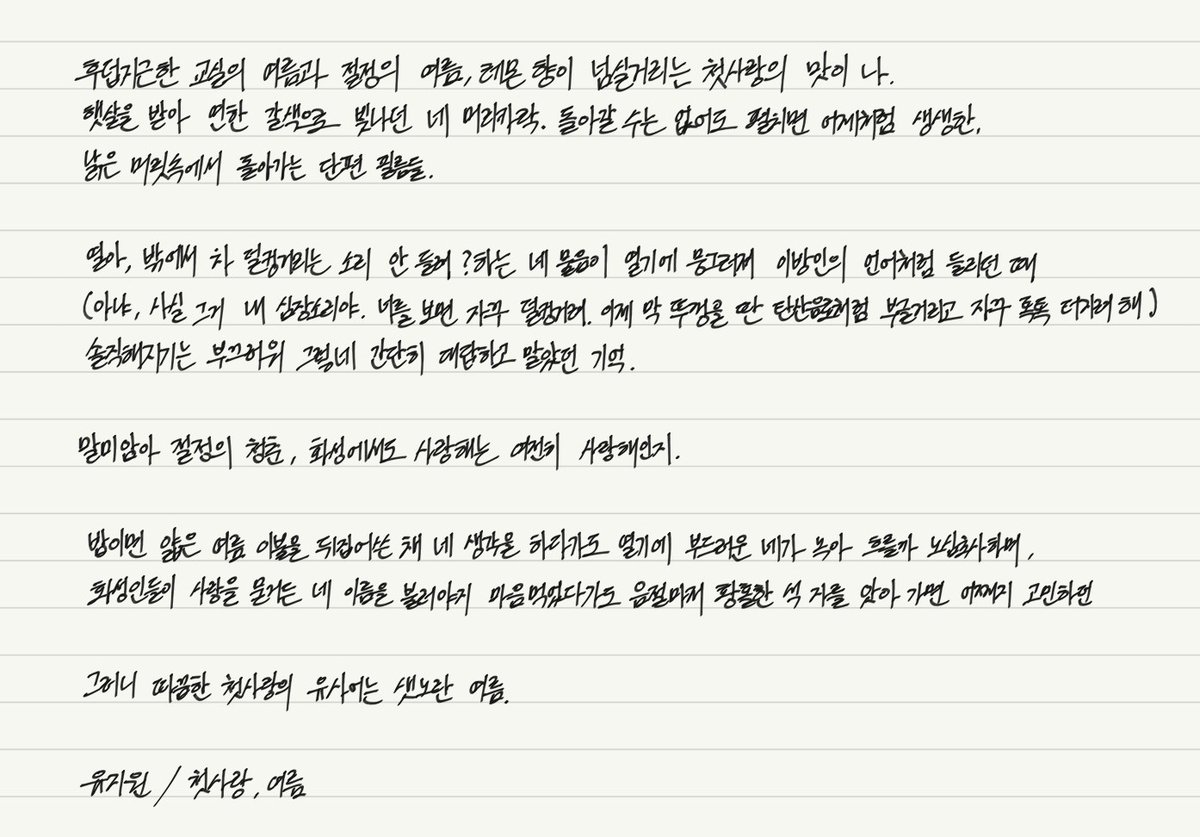 후덥지근한 교실의 여름과 절정의 여름, 레몬 향이 넘실거리는 첫사랑의 맛이 나.
햇살을 받아 연한 갈색으로 빛나던 네 머리카락. 돌아갈 수는 없어도 펼치면 어제처럼 생생한,
낡은 머릿속에서 돌아가는 단편 필름들.
열아, 밖에서 차 덜컹거리는 소리 안 들려? 하는 네 물음이 열기에 뭉그러져 이방인의 언어처럼 들리던 때
(아냐, 사실 그거 내 심장소리야. 너를 보면 자꾸 덜컹거려. 이제 막 뚜껑을 딴 탄산음료처럼 부글거리고 자꾸 톡톡 터지려 해)
솔직해지기는 부끄러워 그렇네 간단히 대답하고 말았던 기억.
말미암아 절정의 청춘, 화성에서도 사랑해는 여전히 사랑해인지.
밤이면 얇은 여름 이불을 뒤집어쓴 채 네 생각을 하다가도 열기에 부드러운 네가 녹아 흐를까 노심초사하며,
화성인들이 사랑을 묻거든 네 이름을 불러야지 마음먹었다가도 음절마저 황홀한 석 자를 앗아 가면 어쩌지 고민하던
그러니 따끔한 첫사랑의 유사어는 샛노란 여름.
유지원 / 첫사랑, 여름